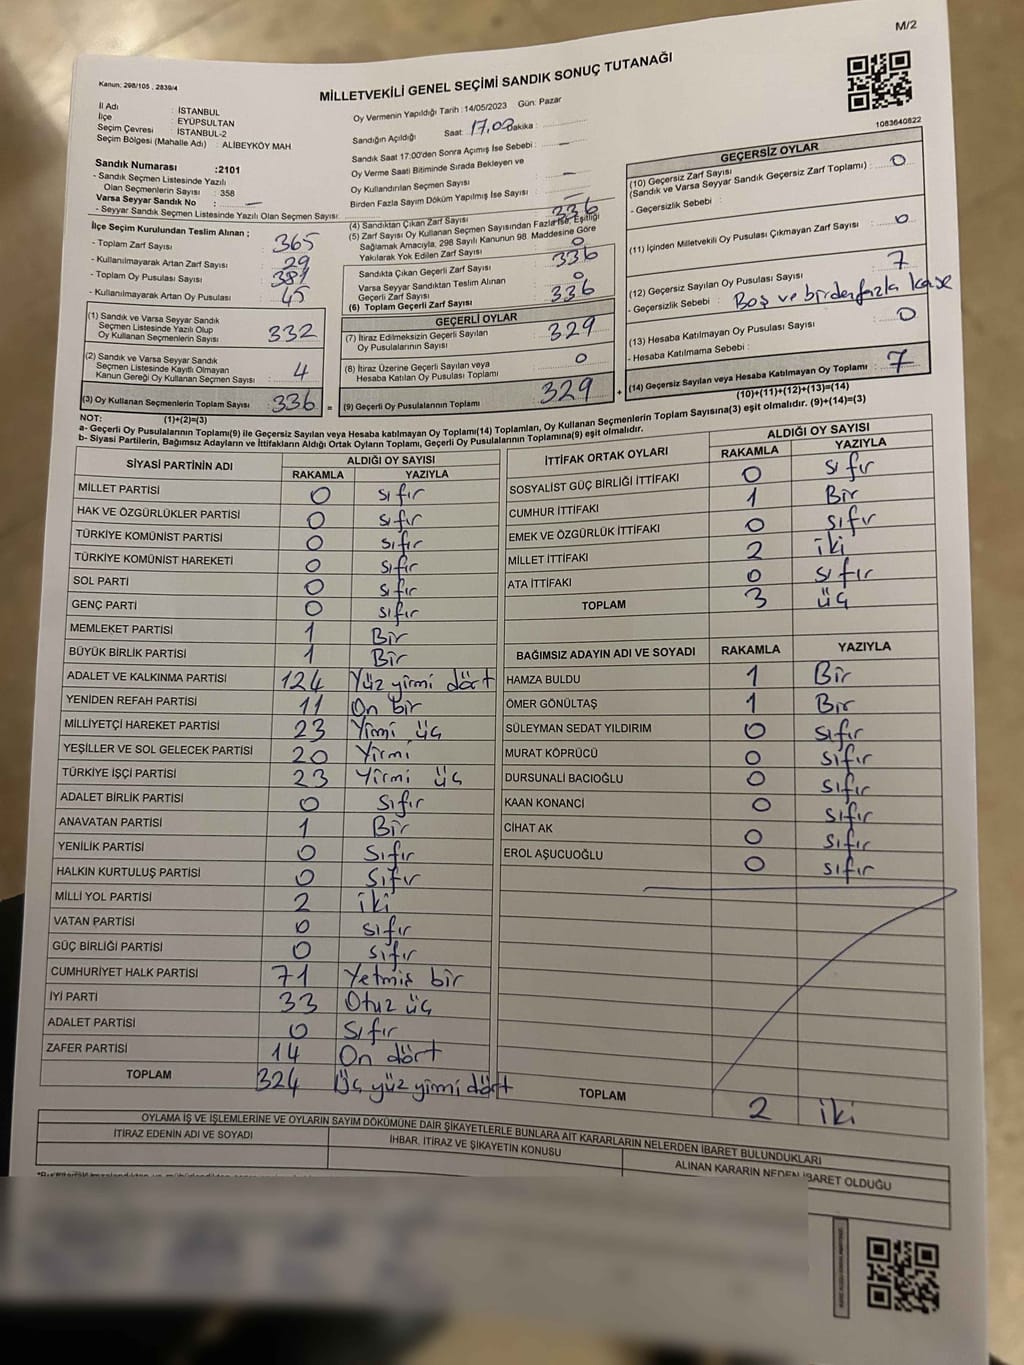 M/2
Kanun: 298/105 , 2839/4
MİLLETVEKİLİ GENEL SEÇİMİ SANDIK SONUÇ TUTANAĞI
1083640822
İl Adı : İSTANBUL
İlçe : EYÜPSULTAN
Seçim Çevresi : İSTANBUL-2
Seçim Bölgesi (Mahalle Adı) : ALİBEYKÖY MAH
Sandık Numarası :2101
- Sandık Seçmen Listesinde Yazılı
Olan Seçmenlerin Sayısı : 358
Varsa Seyyar Sandık No : –
- Seyyar Sandık Seçmen Listesinde Yazılı Olan Seçmen Sayısı:
Oy Vermenin Yapıldığı Tarih :14/05/2023 Gün: Pazar
Sandığın Açıldığı Saat: 17.02 Dakika :
Sandık Saat 17:00'den Sonra Açımış İse Sebebi : –
Oy Verme Saati Bitiminde Sırada Bekleyen ve
Oy Kullandırılan Seçmen Sayısı : –
Birden Fazla Sayım Döküm Yapılmış İse Sayısı :
İlçe Seçim Kurulundan Teslim Alınan ;
- Toplam Zarf Sayısı : 365
- Kullanılmayarak Artan Zarf Sayısı : 29
- Toplam Oy Pusulası Sayısı : 381
- Kullanılmayarak Artan Oy Pusulası : 45
(1) Sandık ve Varsa Seyyar Sandık
Seçmen Listesinde Yazılı Olup
Oy Kullanan Seçmenlerin Sayısı : 332
(2) Sandık ve Varsa Seyyar Sandık
Seçmen Listesinde Kayıtlı Olmayan
Kanun Gereği Oy Kullanan Seçmen Sayısı : 4
(3) Oy Kullanan Seçmenlerin Toplam Sayısı : 336
(1)+(2)=(3)
(4) Sandıktan Çıkan Zarf Sayısı : 336
(5) Zarf Sayısı Oy Kullanan Seçmen Sayısından Fazla İse, Eşitliği
Sağlamak Amacıyla, 298 Sayılı Kanunun 98. Maddesine Göre
Yakılarak Yok Edilen Zarf Sayısı : 0
Sandıkta Çıkan Geçerli Zarf Sayısı : 336
Varsa Seyyar Sandıktan Teslim Alınan
Geçerli Zarf Sayısı : 0
(6) Toplam Geçerli Zarf Sayısı : 336
GEÇERLİ OYLAR
(7) İtiraz Edilmeksizin Geçerli Sayılan
Oy Pusulalarının Sayısı : 329
(8) İtiraz Üzerine Geçerli Sayılan veya
Hesaba Katılan Oy Pusulası Toplamı : 0
= (9) Geçerli Oy Pusulalarının Toplamı : 329 +
GEÇERSİZ OYLAR
(10) Geçersiz Zarf Sayısı
(Sandık ve Varsa Seyyar Sandık Geçersiz Zarf Toplamı) : 0
- Geçersizlik Sebebi :
(11) İçinden Milletvekili Oy Pusulası Çıkmayan Zarf Sayısı : 0
(12) Geçersiz Sayılan Oy Pusulası Sayısı : 7
- Geçersizlik Sebebi : Boş ve birden fazla kaşe
(13) Hesaba Katılmayan Oy Pusulası Sayısı : 0
- Hesaba Katılmama Sebebi :
(14) Geçersiz Sayılan veya Hesaba Katılmayan Oy Toplamı : 7
(10)+(11)+(12)+(13)=(14)
NOT:
a- Geçerli Oy Pusulalarının Toplamı(9) ile Geçersiz Sayılan veya Hesaba katılmayan Oy Toplamı(14) Toplamları, Oy Kullanan Seçmenlerin Toplam Sayısına(3) eşit olmalıdır. (9)+(14)=(3)
b- Siyasi Partilerin, Bağımsız Adayların ve İttifakların Aldığı Ortak Oyların Toplamı, Geçerli Oy Pusulalarının Toplamına(9) eşit olmalıdır.
SİYASİ PARTİNİN ADI ALDIĞI OY SAYISI
RAKAMLA YAZIYLA
MİLLET PARTİSİ 0 sıfır
HAK VE ÖZGÜRLÜKLER PARTİSİ 0 sıfır
TÜRKİYE KOMÜNİST PARTİSİ 0 sıfır
TÜRKİYE KOMÜNİST HAREKETİ 0 sıfır
SOL PARTİ 0 sıfır
GENÇ PARTİ 0 sıfır
MEMLEKET PARTİSİ 1 Bir
BÜYÜK BİRLİK PARTİSİ 1 Bir
ADALET VE KALKINMA PARTİSİ 124 Yüz yirmi dört
YENİDEN REFAH PARTİSİ 11 On bir
MİLLİYETÇİ HAREKET PARTİSİ 23 Yirmi üç
YEŞİLLER VE SOL GELECEK PARTİSİ 20 Yirmi
TÜRKİYE İŞÇİ PARTİSİ 23 Yirmi üç
ADALET BİRLİK PARTİSİ 0 Sıfır
ANAVATAN PARTİSİ 1 Bir
YENİLİK PARTİSİ 0 Sıfır
HALKIN KURTULUŞ PARTİSİ 0 Sıfır
MİLLİ YOL PARTİSİ 2 iki
VATAN PARTİSİ 0 sıfır
GÜÇ BİRLİĞİ PARTİSİ 0 sıfır
CUMHURİYET HALK PARTİSİ 71 Yetmiş bir
İYİ PARTİ 33 Otuz üç
ADALET PARTİSİ 0 Sıfır
ZAFER PARTİSİ 14 On dört
TOPLAM 324 Üç yüz yirmi dört
İTTİFAK ORTAK OYLARI ALDIĞI OY SAYISI
RAKAMLA YAZIYLA
SOSYALİST GÜÇ BİRLİĞİ İTTİFAKI 0 sıfır
CUMHUR İTTİFAKI 1 Bir
EMEK VE ÖZGÜRLÜK İTTİFAKI 0 sıfır
MİLLET İTTİFAKI 2 iki
ATA İTTİFAKI 0 sıfır
TOPLAM 3 üç
BAĞIMSIZ ADAYIN ADI VE SOYADI RAKAMLA YAZIYLA
HAMZA BULDU 1 Bir
ÖMER GÖNÜLTAŞ 1 Bir
SÜLEYMAN SEDAT YILDIRIM 0 sıfır
MURAT KÖPRÜCÜ 0 sıfır
DURSUNALİ BACIOĞLU 0 sıfır
KAAN KONANCİ 0 sıfır
CİHAT AK 0 sıfır
EROL AŞUCUOĞLU 0 sıfır
TOPLAM 2 iki
OYLAMA İŞ VE İŞLEMLERİNE VE OYLARIN SAYIM DÖKÜMÜNE DAİR ŞİKAYETLERLE BUNLARA AİT KARARLARIN NELERDEN İBARET BULUNDUKLARI
İTİRAZ EDENİN ADI VE SOYADI İHBAR, İTİRAZ VE ŞİKAYETİN KONUSU ALINAN KARARIN NEDEN İBARET OLDUĞU